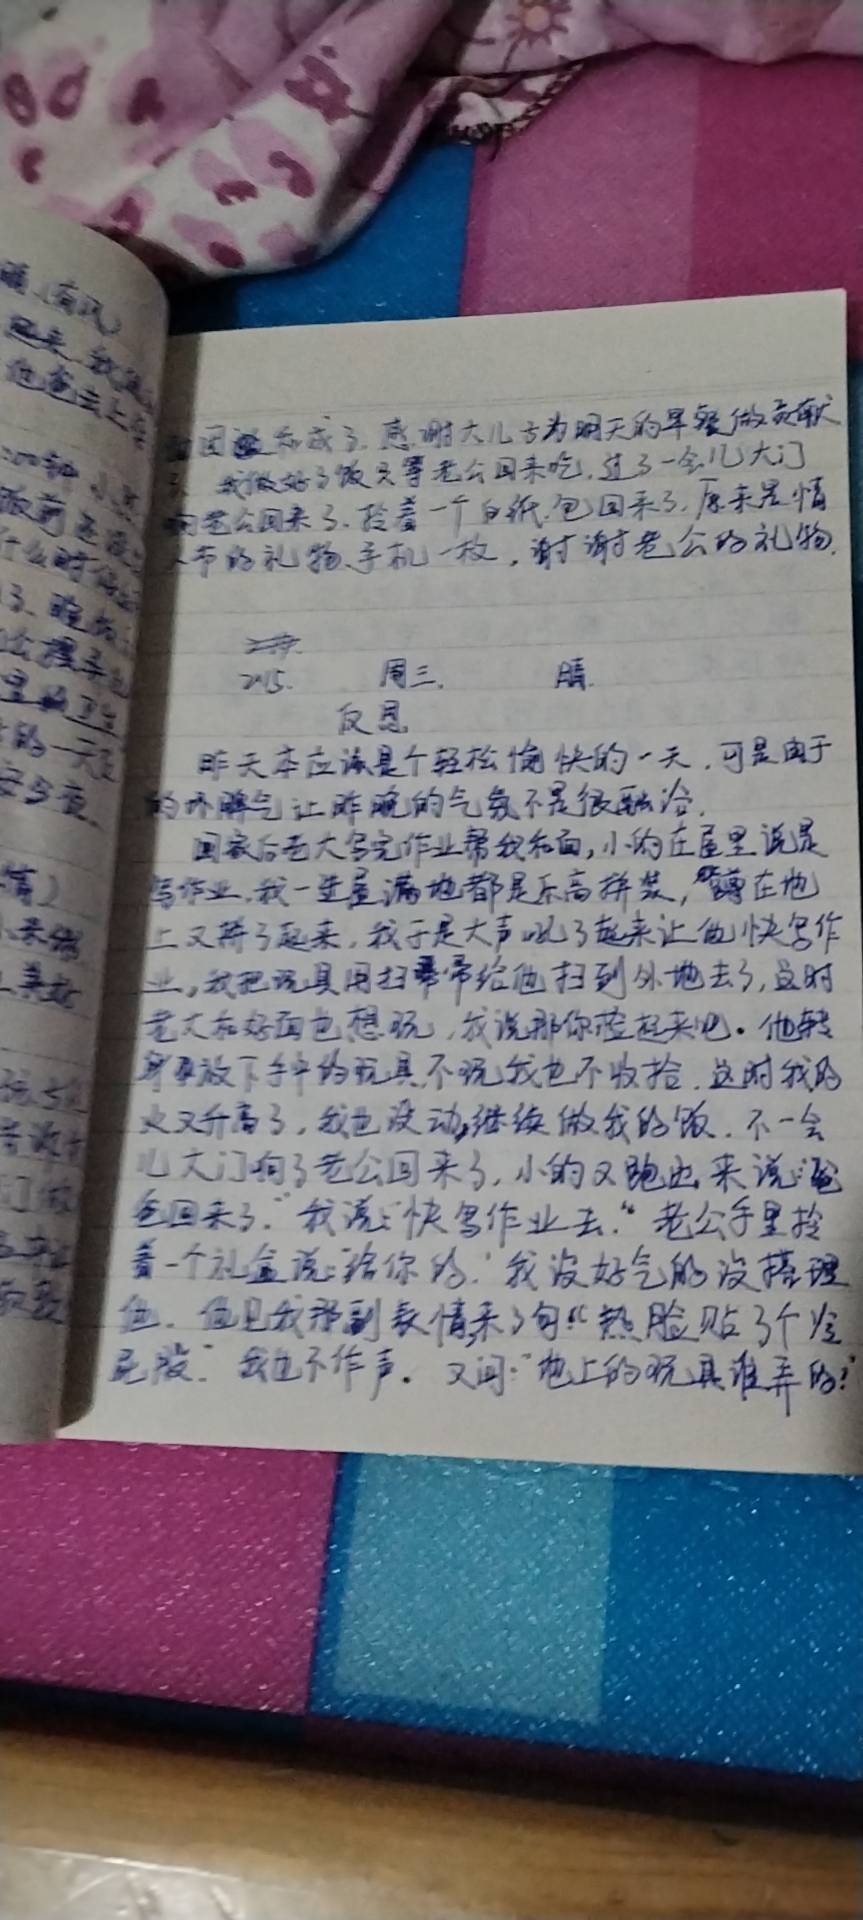 晴（有风）
起来，我
他爸去上
饭前还没
什么时候
了．晚
的一天
情）
团和成了．感谢大儿子为明天的早餐做贡献
了．我做好了饭只等老公回来吃．过了一会儿大门
响老公回来了．拎着一个白纸包回来了．原来是情
人节的礼物、手机一枚，谢谢老公的礼物．
2.15． 周三． 晴．
反思
昨天本应该是个轻松愉快的一天，可是由于
的坏脾气让昨晚的气氛不是很融洽．
回家后老大写完作业帮我和面，小的在屋里说是
写作业．我一进屋满地都是乐高拼装，蹲在地
上又拼了起来，我于是大声吼了起来让他快写作
业，我把玩具用扫帚给他扫到外地去了，这时
老大和好面也想玩，我说那你捡起来吧．他转
身放下手中的玩具不玩我也不收拾．这时我的
火又升高了，我也没动，继续做我的饭．不一会
儿大门响了老公回来了，小的又跑出来说：“爸
爸回来了．”我说：“快写作业去．”老公手里拎
着一个礼盒说：“给你的．”我没好气的没搭理
他．他见我那副表情来了句“热脸贴了个冷
屁股．”我也不作声．又问：“地上的玩具谁弄的？”